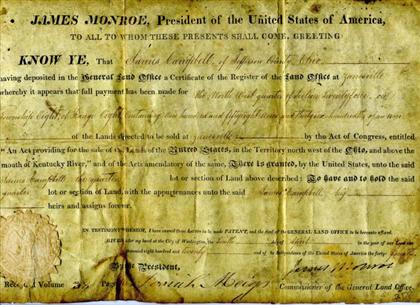 JAMES MONROE, President of the United States of America,
TO ALL TO WHOM THESE PRESENTS SHALL COME, GREETING
KNOW YE, That James Campbell of Jefferson County Ohio
having deposited in the General Land Office a Certificate of the Register of the Land Office at Zanesville
whereby it appears that full payment has been made for the North West quarter of Section
Township Eight, of Range Eight, Containing One hundred and
of the Lands directed to be sold at Zanesville by the Act of Congress, entitled
"An Act providing for the sale of the Lands of the United States, in the Territory north west of the Ohio, and above the
mouth of Kentucky River," and of the Acts amendatory of the same, There is granted, by the United States, unto the said
James Campbell the quarter lot or section of Land above described: To have and to hold the said
quarter lot or section of Land, with the appurtenances unto the said James Campbell his
heirs and assigns forever.
IN TESTIMONY WHEREOF, I have caused these Letters to be made PATENT, and the Seal of the GENERAL LAND OFFICE to be hereunto affixed.
GIVEN under my hand at the City of Washington, the day of in the year of our Lord one
thousand eight hundred and twenty and of the Independence of the United States of America the forty
By the President, James Monroe
Josiah Meigs Commissioner of the General Land Office.
Volume